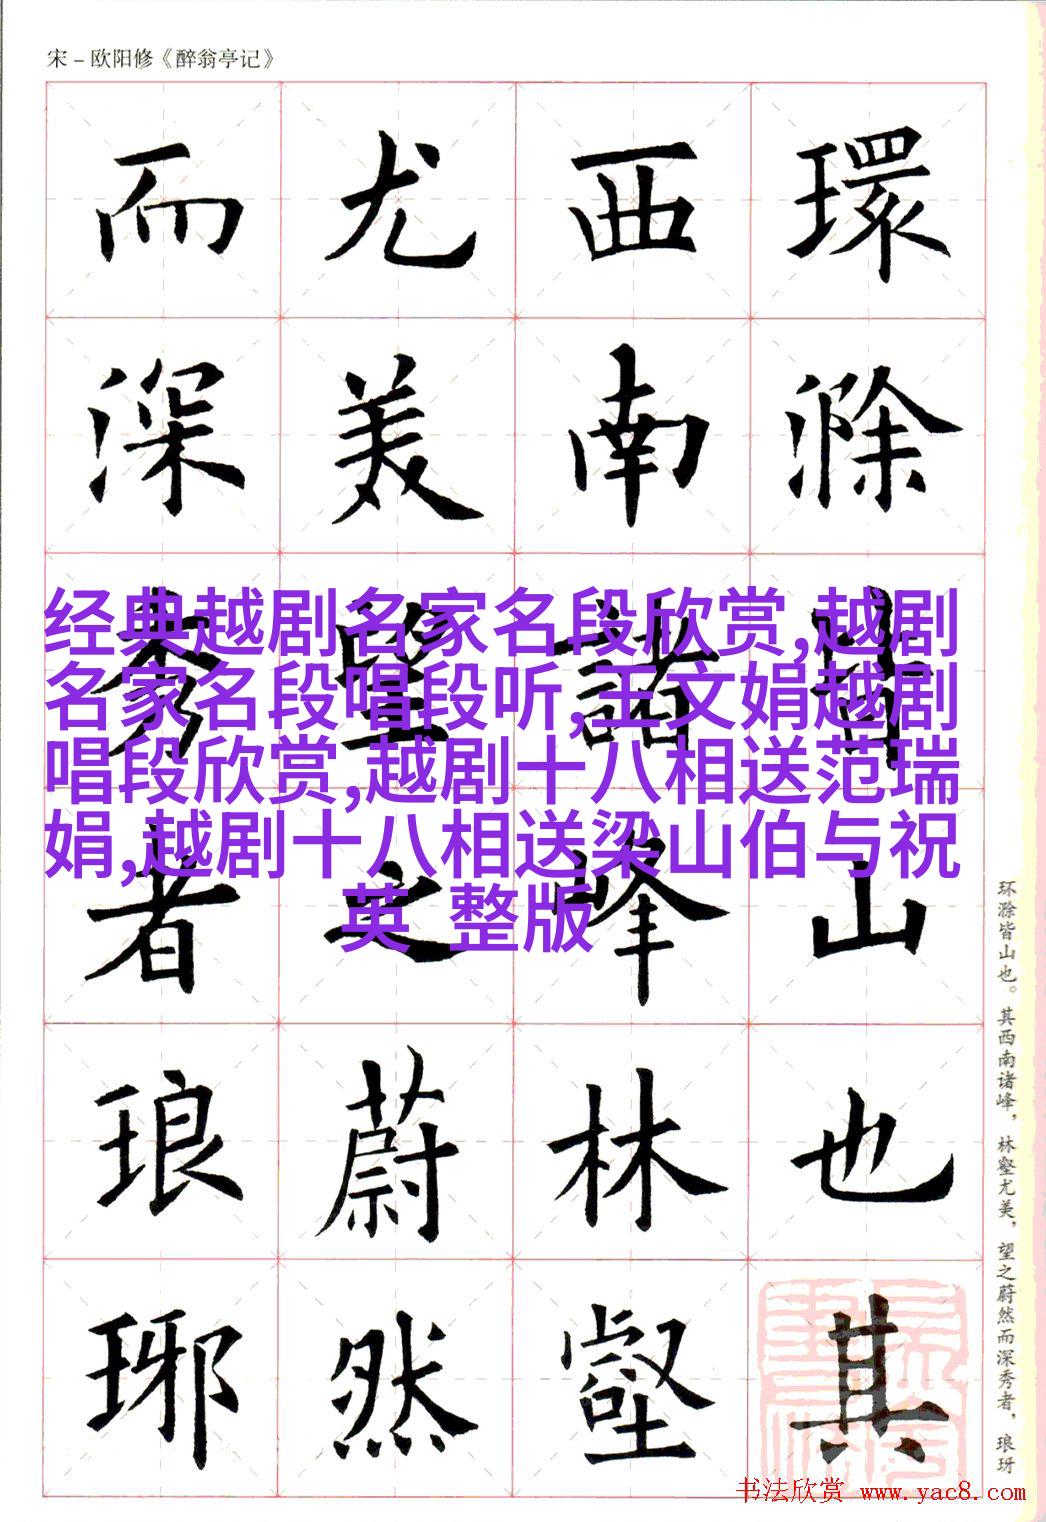 宋－欧阳修《醉翁亭记》
環滁皆山也其
西南諸峰林壑
尤美望之蔚然
而深秀者琅琊
经典越剧名家名段欣赏,越剧
名家名段唱段听,王文娟越剧
唱段欣赏,越剧十八相送范瑞
娟,越剧十八相送梁山伯与祝
英 整版
环滁皆山也。其西南诸峰，林壑尤美，望之蔚然而深秀者，琅玡
书法欣赏 www.yac8.com